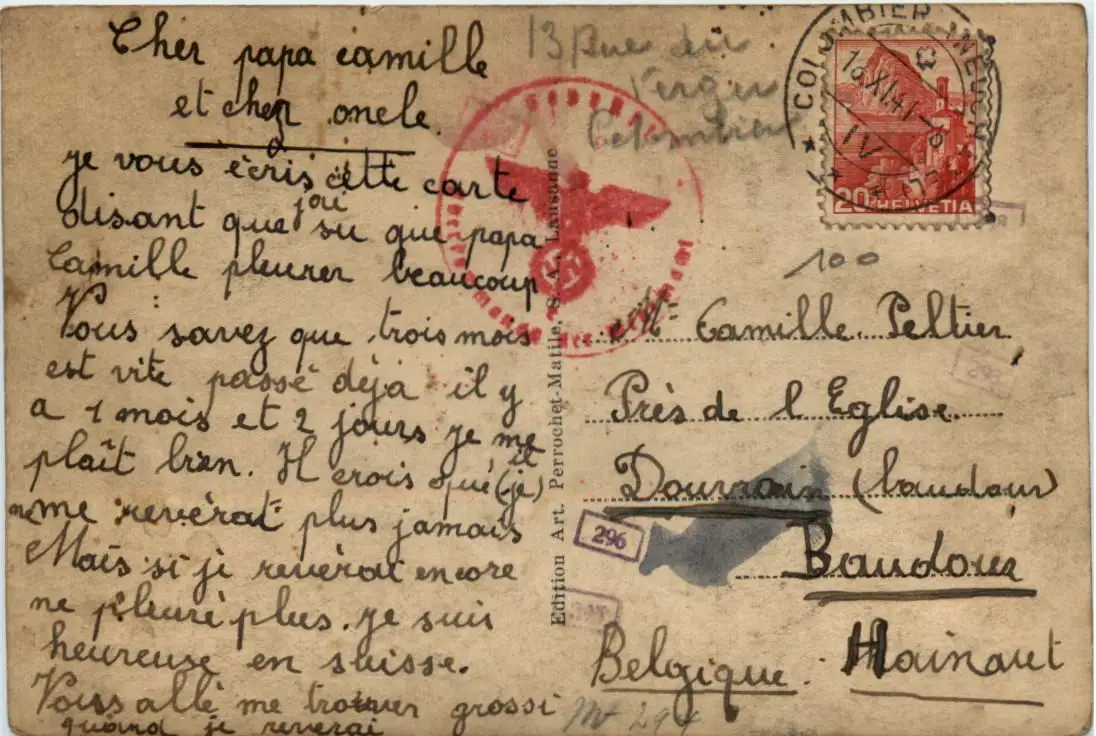 Cher papa camille
et cher oncle.
je vous écris cette carte
disant que j'ai su que papa
Camille pleurer beaucoup
Vous savez que trois mois
est vite passé déjà il y
a 1 mois et 2 jours je me
plaît bien. Il crois que (je) il
me reverat plus jamais
Mais si je reverai encore
ne pleuré plus. je suis
heureuse en suisse.
Vous allé me trouver grossi
quand je reverai
13 Rue du
Verger
Colombier
COLOMBIER
18.XI.41
IV
20 HELVETIA
100
Mr Camille Peltier
Près de l Eglise
Douvrain (baudour)
Baudour
Belgique. Hainaut
296
Edition Art. Perrochet-Matile, S. A. Lausanne